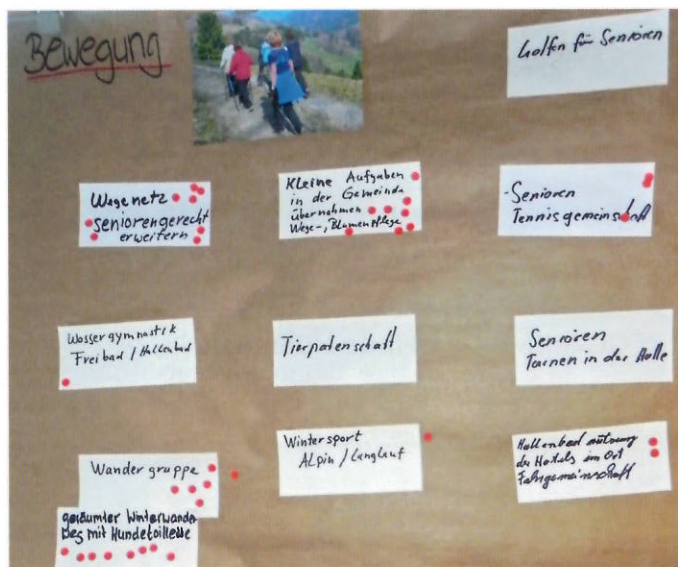 Bewegung
Golfen für Senioren
Wegenetz
seniorengerecht
erweitern
Kleine Aufgaben
in der Gemeinde
übernehmen
Wege-, Blumenpflege
-Senioren
Tennisgemeinschaft
Wassergymnastik
Freibad / Hallenbad
Tierpatenschaft
Senioren
Turnen in der Halle
Wandergruppe
Wintersport
Alpin / Langlauf
Hallenbad nutzung
des Hotels im Ort
Fahrgemeinschaft
geräumter Winterwander
weg mit Hundetoilette